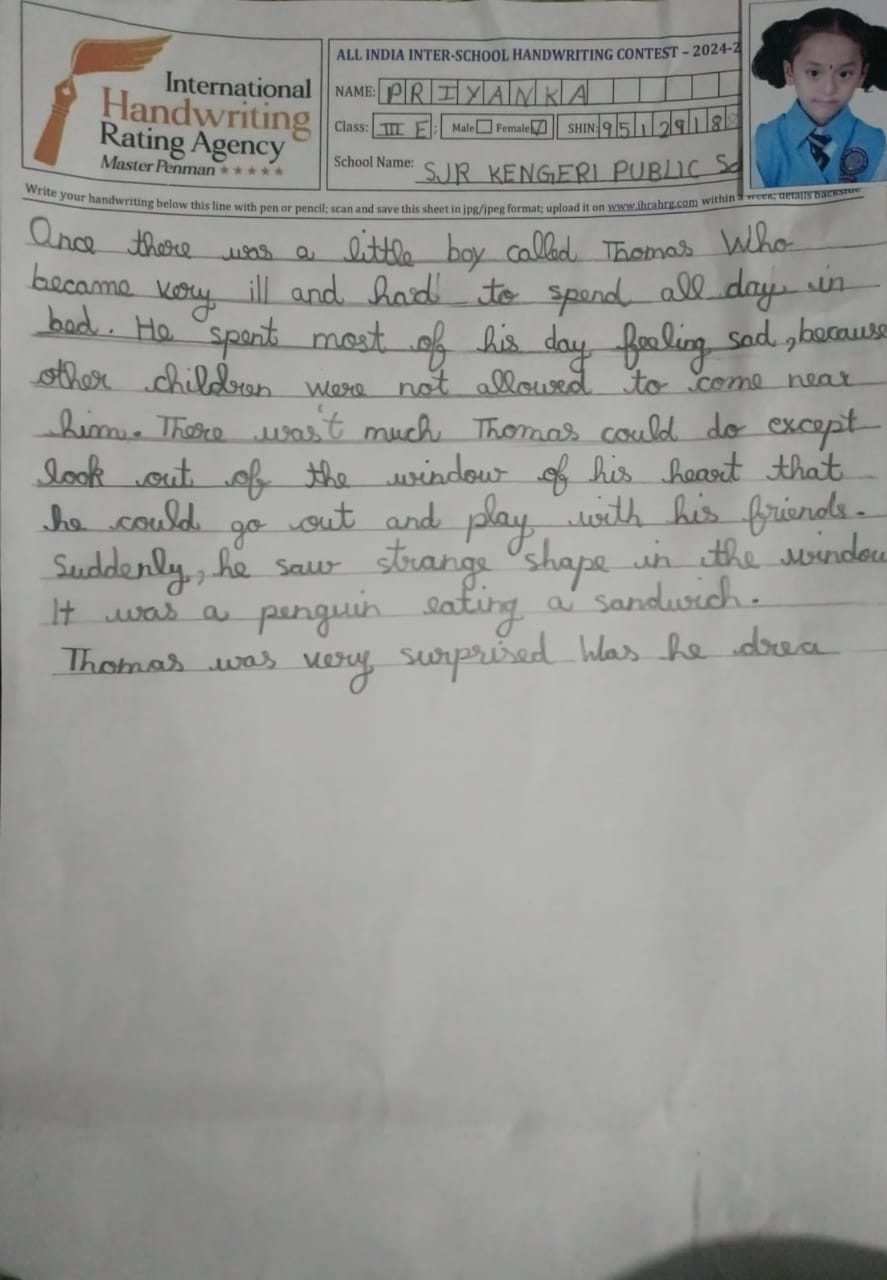 International
Handwriting
Rating Agency
Master Penman
ALL INDIA INTER-SCHOOL HANDWRITING CONTEST – 2024-2
NAME: PRIYANKA
Class: III E; Male Female SHIN: 9512918
School Name: SJR KENGERI PUBLIC Sc
Write your handwriting below this line with pen or pencil; scan and save this sheet in jpg/jpeg format; upload it on www.ihrahrg.com within a week; details backside
Once there was a little boy called Thomas Who
became very ill and had to spend all day in
bed. He spent most of his day feeling sad, because
other children were not allowed to come near
him. There was't much Thomas could do except
look out of the window of his heart that
he could go out and play with his friends.
Suddenly, he saw strange shape in the window
It was a penguin eating a sandwich.
Thomas was very surprised Was he drea